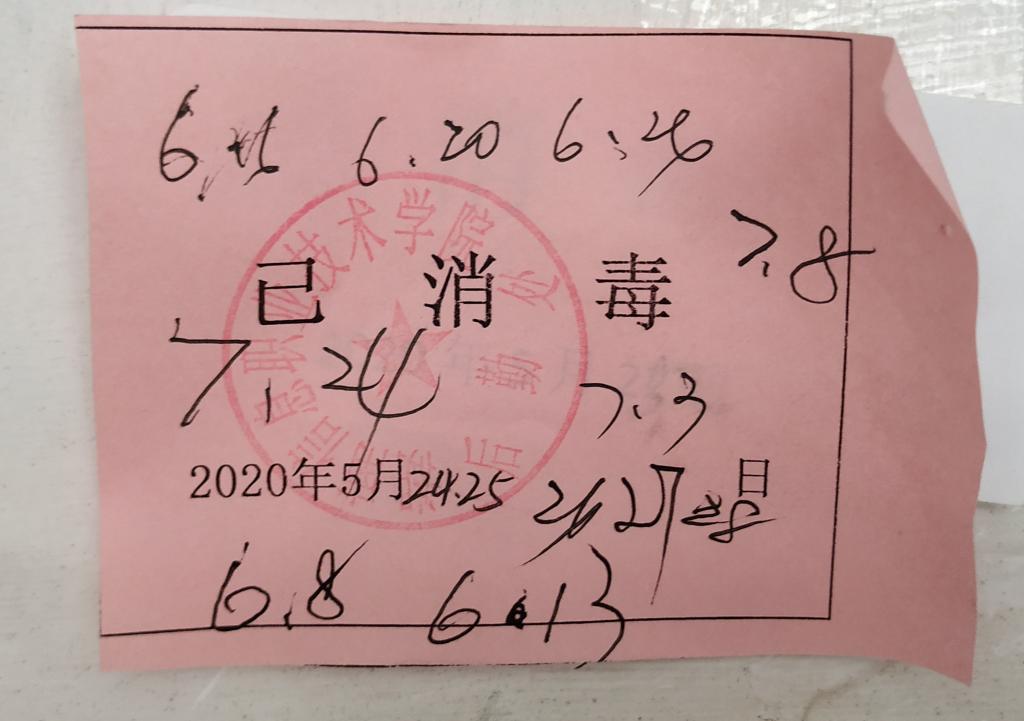 6.20 6.26
7.8
已 消 毒
7.24
7.3
2020年5月24.25 26 27 28日
6.8 6.13
技术学院
后勤处